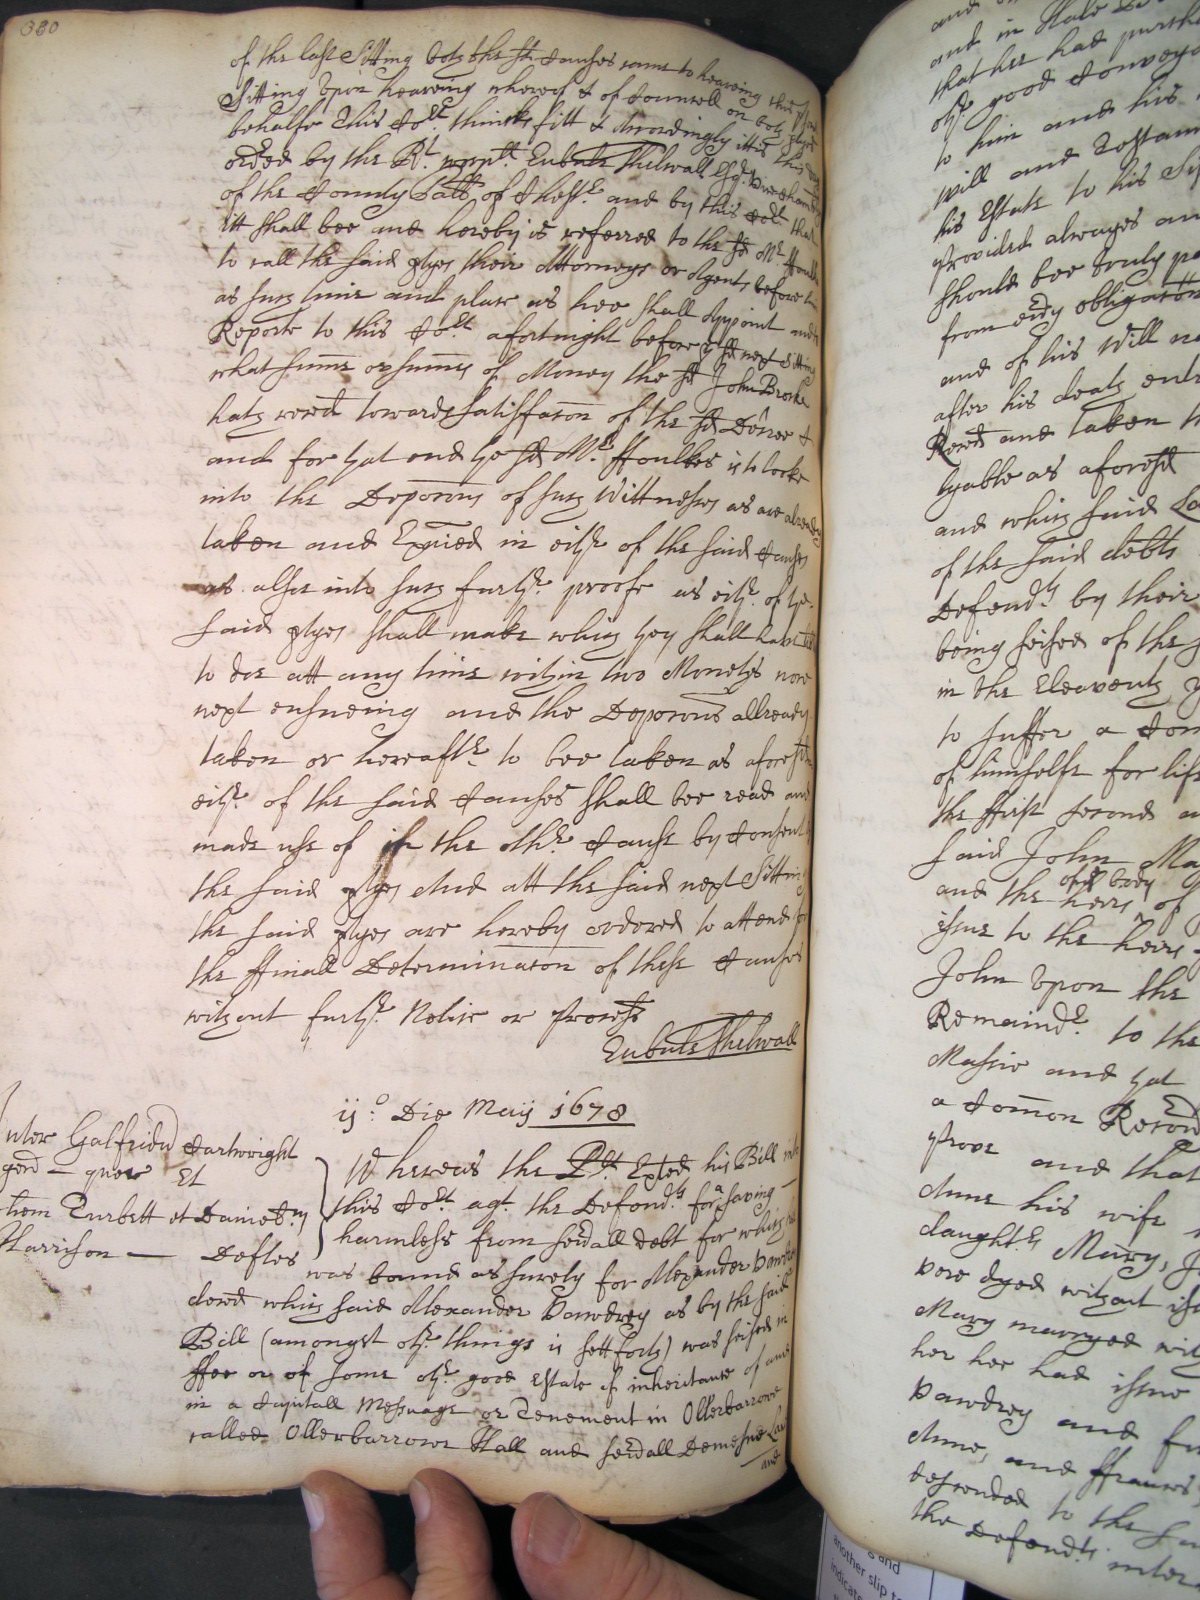 380
of the last Sitting both the sd Causes came to hearing this
Sitting Upon heareing whereof & of Councell on both ptyes
behalfe This Cort. thinks fitt & Accordingly itt is this day
ordred by the Rt. worppll. Eubule Thelwall Esqr.
of the County Pallt. of Chestr. and by this Cort. that
itt shall bee and hereby is referred to the sd Mr. ffoulkes
to call the said ptyes their Attorneys or Agents before him
att such time and place as hee shall Appoint and to
Reporte to this Cort. a fortnight before ye sd next Sitting
what sume or sumes of Money the sd John Brooke
hath reced towards satisfaccon of the sd Decree &
and for yat end ye sd Mr. ffoulkes is to looke
into the Deposicons of such Wittnesses as are already
taken and Exaied in eithr. of the said Causes
as alsoe into such furthr. proofe as eithr. of ye.
said ptyes shall make which yey shall have
to doe att any time within two Moneths now
next ensueing and the Deposicons allready
taken or hereaftr. to bee taken as aforesd in
eithr. of the said Causes shall bee read and
made use of in the othr. Cause by Consent
the said ptyes And att the said next Sitting
the said ptyes are hereby ordered to attend for
the ffinall Determinacon of these Causes
without furthr. Notice or Processe
Eubule Thelwall
ijo. Die Maij 1678
Inter Galfridu Cartwright
gen — quer Et
Turbett et Daniel
Harrison — Deftes
Whereas the Plt. Exted his Bill into
this Cort. agt. the Defendts. for a saving
harmless from sevall debt for which hee
was bound as surety for Alexander Vawdrey
which said Alexander Vawdrey as by the said
Bill (amongst othr. things is sett forth) was seised in
ffee or of some othr. good Estate of inheritance of and
in a Capitall Messuage or Tenement in Ollerbarrowe
called Ollerbarrowe Hall and sevall Demesne Lands
and
and in
that hee had
othr. good Conveya
to him and his
Will and Testam
his Estate to his
Provided alwayes an
should bee truly pa
from any obligacon
and of his Will
after his death ent
Reced and taken
lyable as aforesd
and which said La
of the said debts
Defendts. by their
being seised of the
in the Eleaventh y
to suffer a Com
of himselfe for life
the ffirst second a
said John Ma
of his body
and the heirs of
issue to the heirs
John Upon the
Remaindr. to the
Massie and yat
a Comon Recov
prove and that
Anne his wife
daughtrs. Mary,
dyed without iss
Mary marryed with
her hee had issue
Vawdrey and
Anne, and ffrances
descended to the
the Defendts.
and
another slip to
indicate